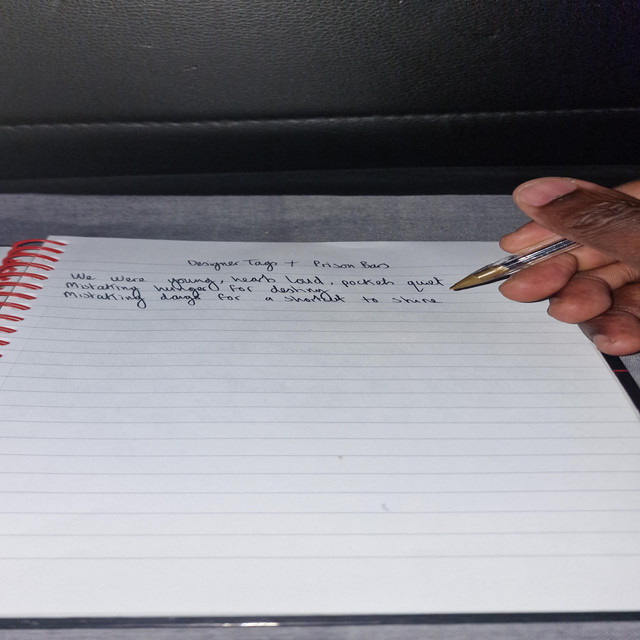 Designer Tags + Prison Bars
We were young, hearts loud, pockets quiet
Mistaking hunger for destiny
Mistaking danger for a shortcut to shine